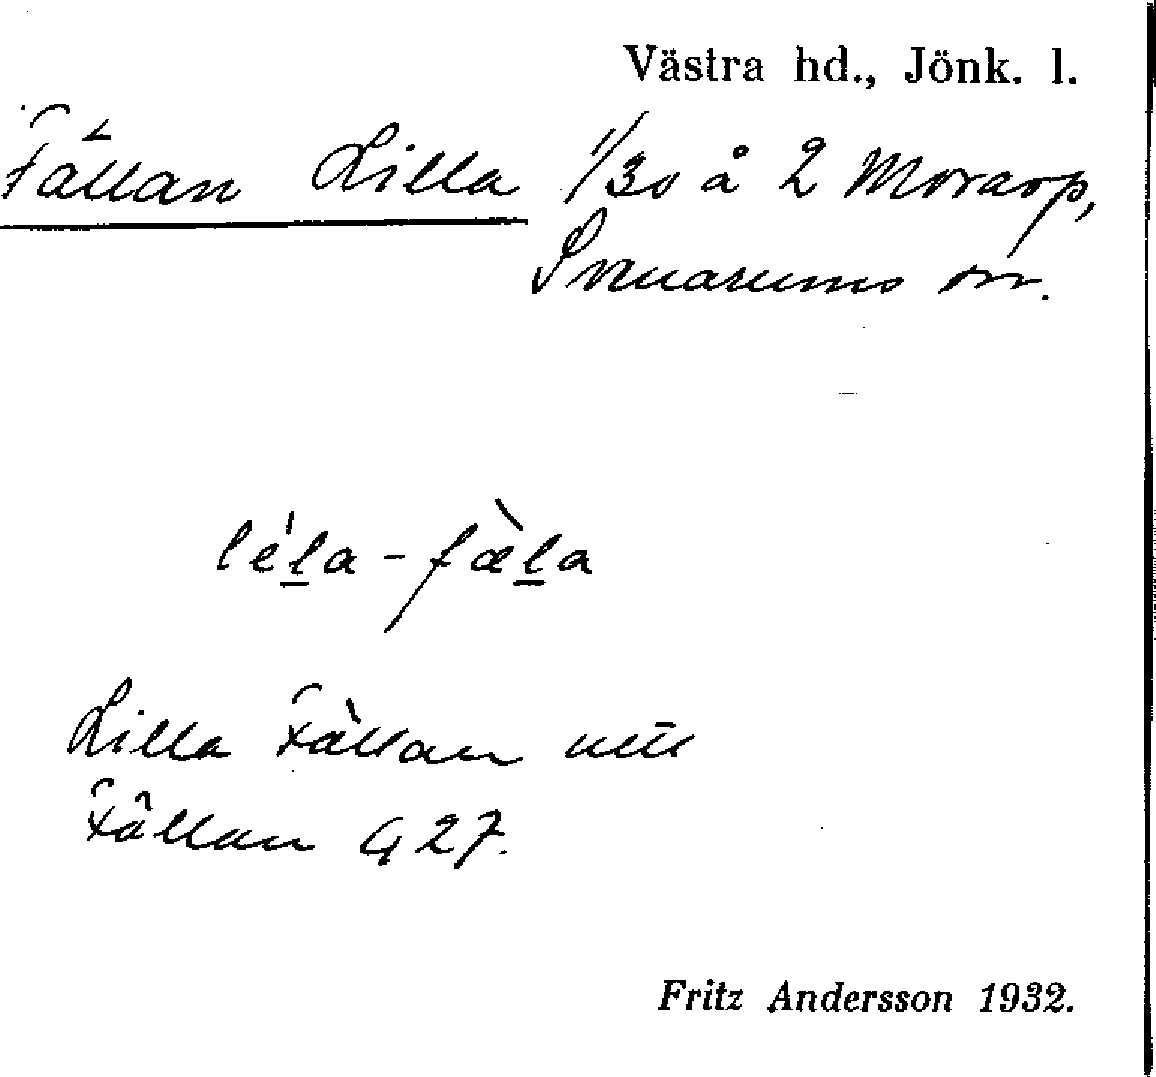 Västra hd., Jönk. l.
Fällan Lilla 1/30 å 2 Morarp,
Svenarums sn.
le̍l̲a - fæ̀l̲a
Lilla Fällan
Fällan G 27.
Fritz Andersson 1932.